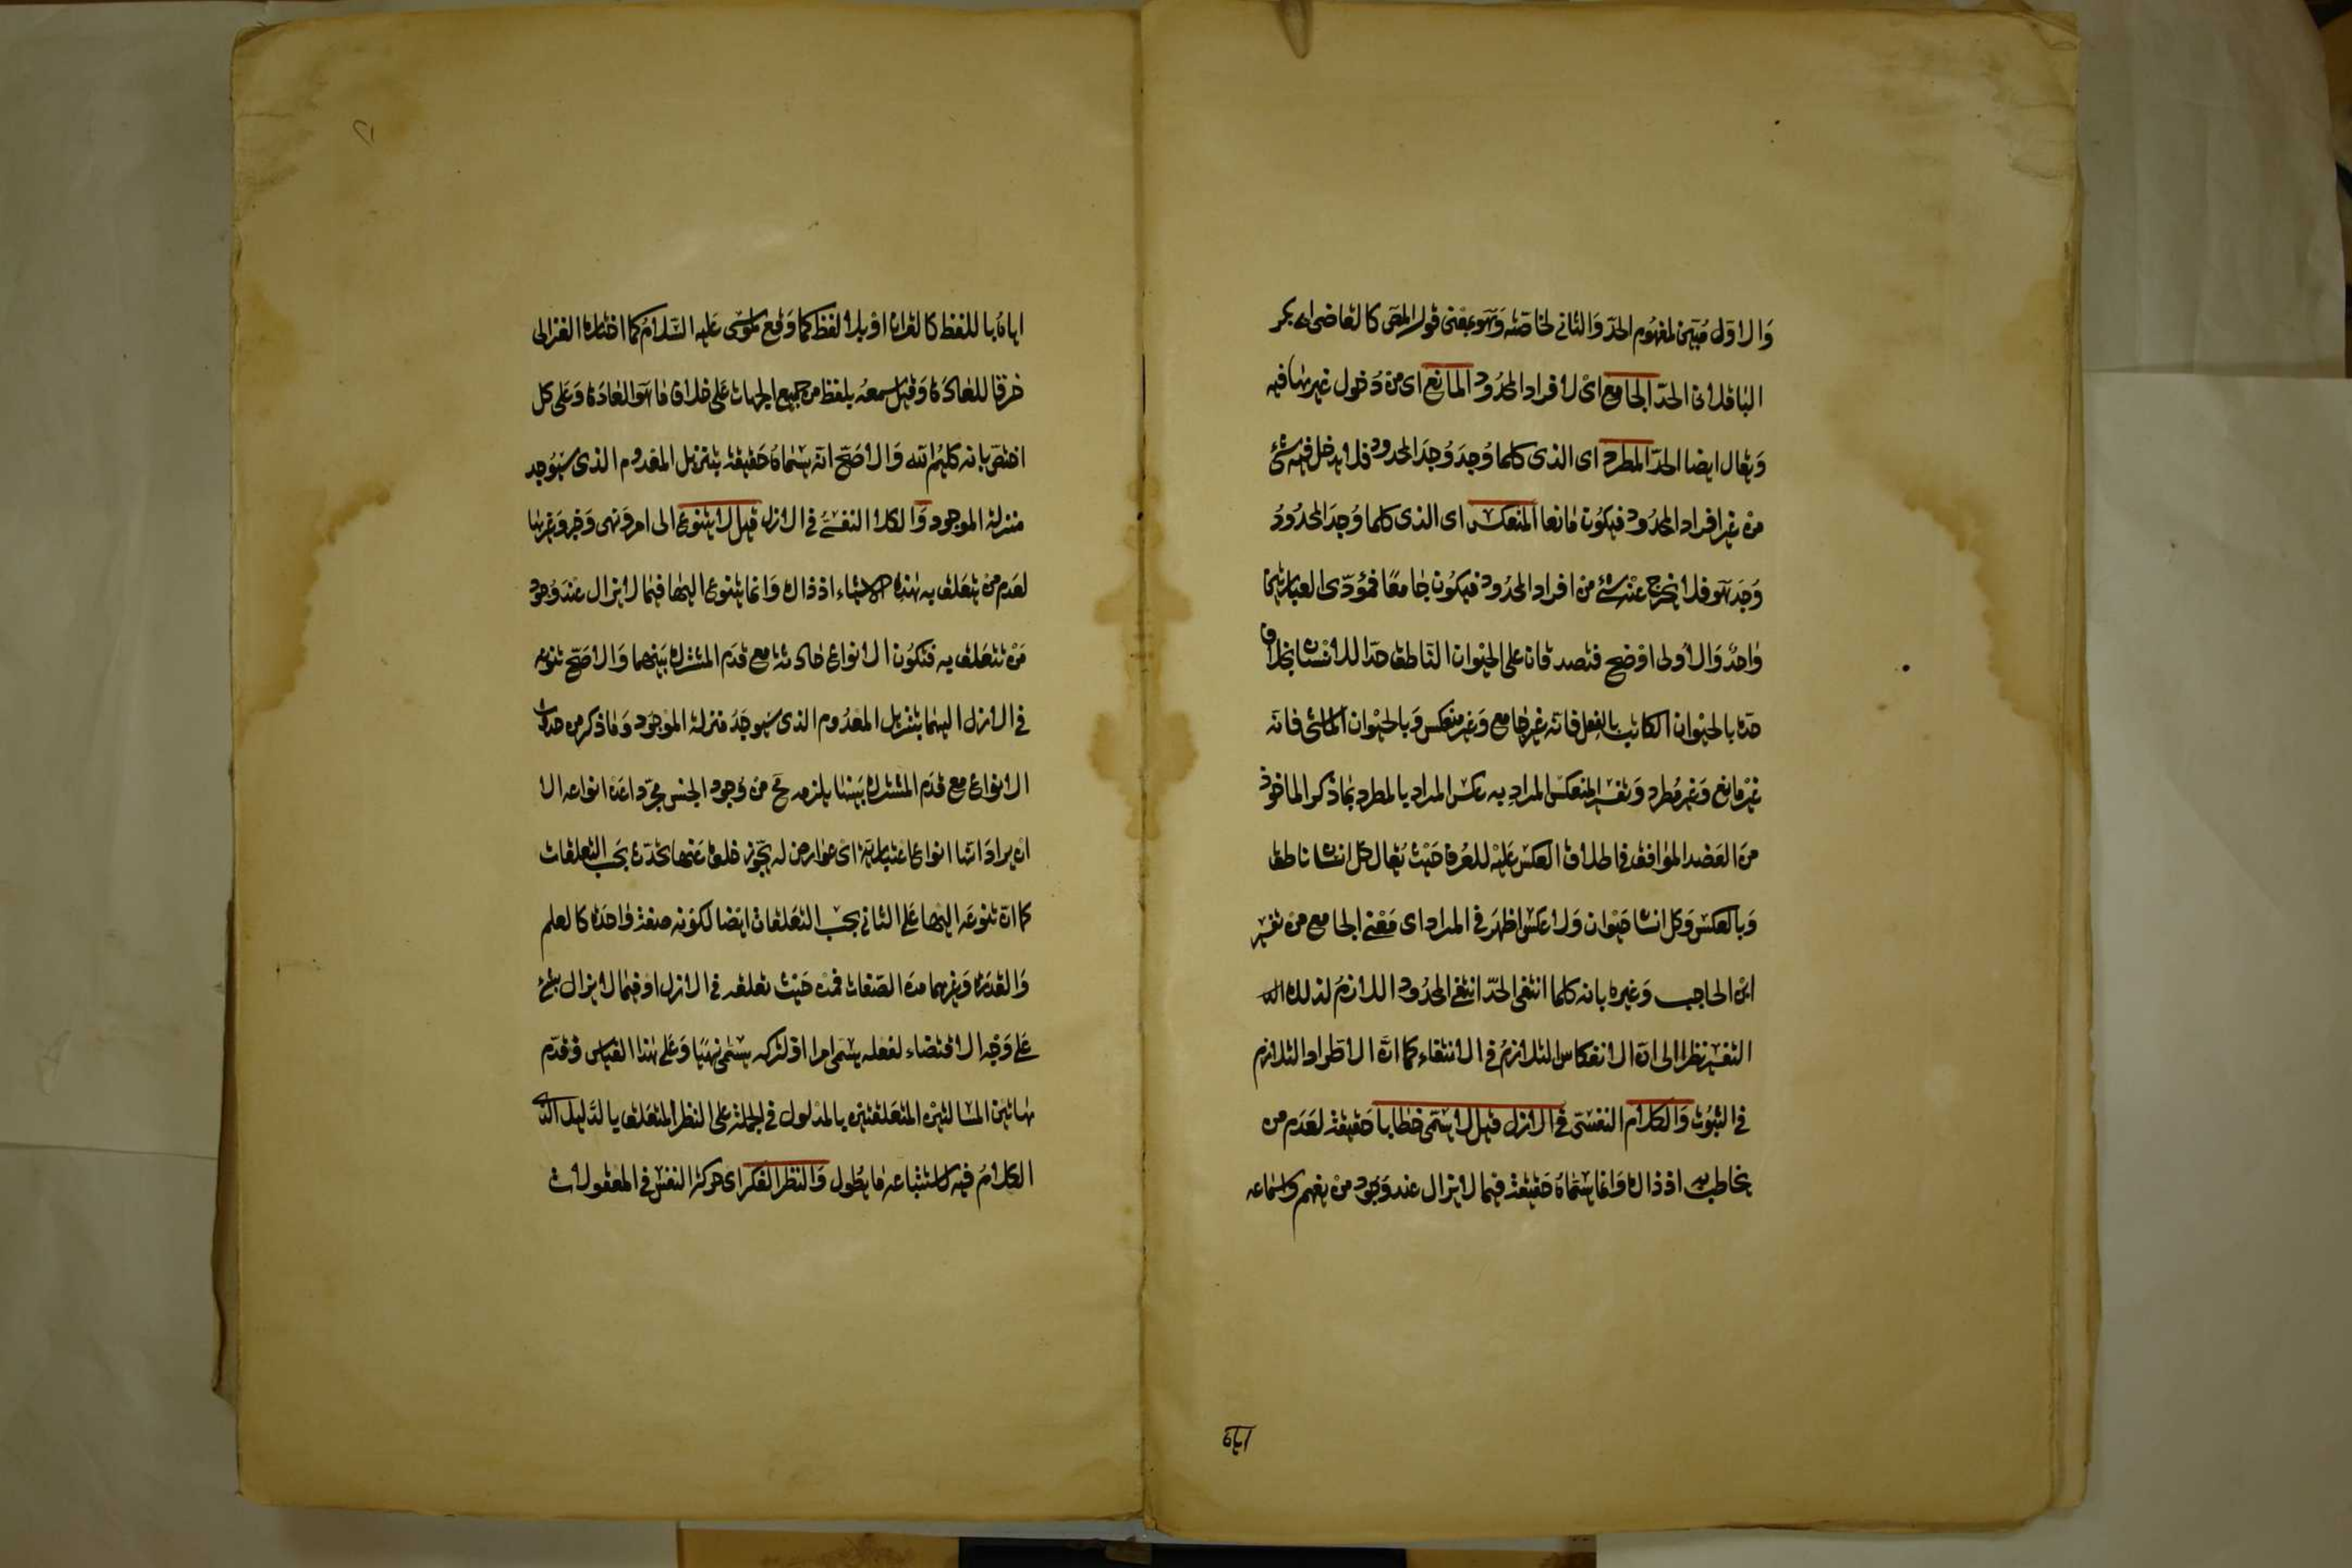 والاول مبين لمفهوم الحد والثاني لخاصته وهو بمعنى قول المص كالقاضي ابي بكر
الباقلاني الحد الجامع اى لافراد المحدود المانع اى من دخول غيرها فيه
ويقال ايضا الحد المطرد اى الذى كلما وجد وجد المحدود فلا يدخل فيه شئ
من غير افراد المحدود فيكون مانعا المنعكس اى الذى كلما وجد المحدود
وجد هو فلا يخرج عنه شئ من افراد المحدود فيكون جامعا فمؤدى العبارتين
واحد والاولى اوضح فتصدقان على الحيوان الناطق حدا للانسان بخلاف
حده بالحيوان الكاتب بالفعل فانه غير جامع وغير منعكس وبالحيوان الماشى فانه
غير مانع وغير مطرد وتفسير المنعكس المراد به عكس المراد بالمطرد بما ذكر الماخوذ
من العضد الموافق في اطلاق العكس عليه للعرف حيث يقال كل انسان ناطق
وبالعكس وكل انسان حيوان ولا عكس اظهر في المراد اى معنى الجامع من تفسير
ابن الحاجب وغيره بانه كلما انتفى الحد انتفى المحدود اللازم لذلك
التفسير نظرا الى ان الانعكاس التلازم في الانتفاء كما ان الاطراد التلازم
في الثبوت والكلام النفسي في الازل قيل لا يسمى خطابا حقيقة لعدم من
يخاطب به اذ ذاك وانما يسماه حقيقة فيما لا يزال عند وجود من يفهم واسماعه
اياه
اياه باللفظ كالقران او بلا لفظ كما وقع لموسى عليه السلام كما اختاره الغزالى
خرقا للعادة وقيل سمعه بلفظ من جميع الجهات على خلاف ما هو العادة وعلى كل
اختص بانه كليم الله والاصح انه يسماه حقيقة بتنزيل المعدوم الذى سيوجد
منزلة الموجود والكلام النفسي في الازل قيل لا يتنوع الى امر ونهى وخبر وغيرها
لعدم من يتعلق به هذه الاشياء اذ ذاك وانما يتنوع اليها فيما لا يزال عند وجود
من تتعلق به فتكون الانواع حادثة مع قدم المشترك بينهما والاصح تنوعه
في الازل اليها بتنزيل المعدوم الذى سيوجد منزلة الموجود وما ذكر من حدوث
الانواع مع قدم المشترك بينها يلزمه مح من وجود الجنس مجردا عن انواعه الا
ان يراد انها انواع اعتبارية اى عوارض له يجوز خلوه عنها تحدث بحسب التعلقات
كما ان تنوعه اليها على الثاني بحسب التعلقات ايضا لكونه صفة واحدة كالعلم
والقدرة وغيرهما من الصفات فمن حيث تعلقه في الازل او فيما لا يزال بشئ
على وجه الاقتضاء لفعله يسمى امرا او لتركه يسمى نهيا وعلى هذا القياس وقدم
هاتين المسالتين المتعلقتين بالمدلول في الجملة على النظر المتعلق بالدليل الذى
الكلام فيه لاستتباعه ما يطول والنظر الفكر اى حركة النفس في المعقولات